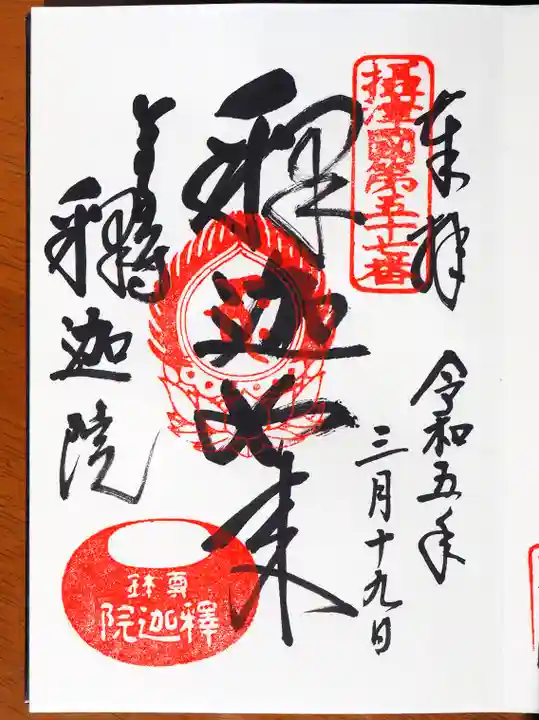 奉拝
攝津國第五十七番
令和五年
三月十九日
釈迦如来
釋迦院
尊鉢
釋迦院